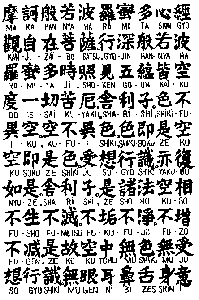 摩訶般若波羅蜜多心經
MA KA HAN NYA HA RA MI TA SHIN GYO
觀自在菩薩行深般若波
KAN JI ZAI BO SATSU GYO JIN HAN NYA HA
羅蜜多時照見五蘊皆空
RA MI TA JI SHO KEN GO UN KAI KU
度一切苦厄舍利子色不
DO IS SAI KU YAKU SHA RI SHI SHIKI FU
異空空不異色色即是空
I KU KU FU I SHIKI SHIKI SOKU ZE KU
空即是色受想行識亦復
KU SOKU ZE SHIKI JU SO GYO SHIKI YAKU BU
如是舍利子是諸法空相
NYO ZE SHA RI SHI ZE SHO HO KU SO
不生不滅不垢不淨不增
FU SHO FU METSU FU KU FU JO FU ZO
不減是故空中無色無受
FU GEN ZE KO KU CHU MU SHIKI MU JU
想行識無眼耳鼻舌身意
SO GYO SHIKI MU GEN NI BI ZES SHIN I